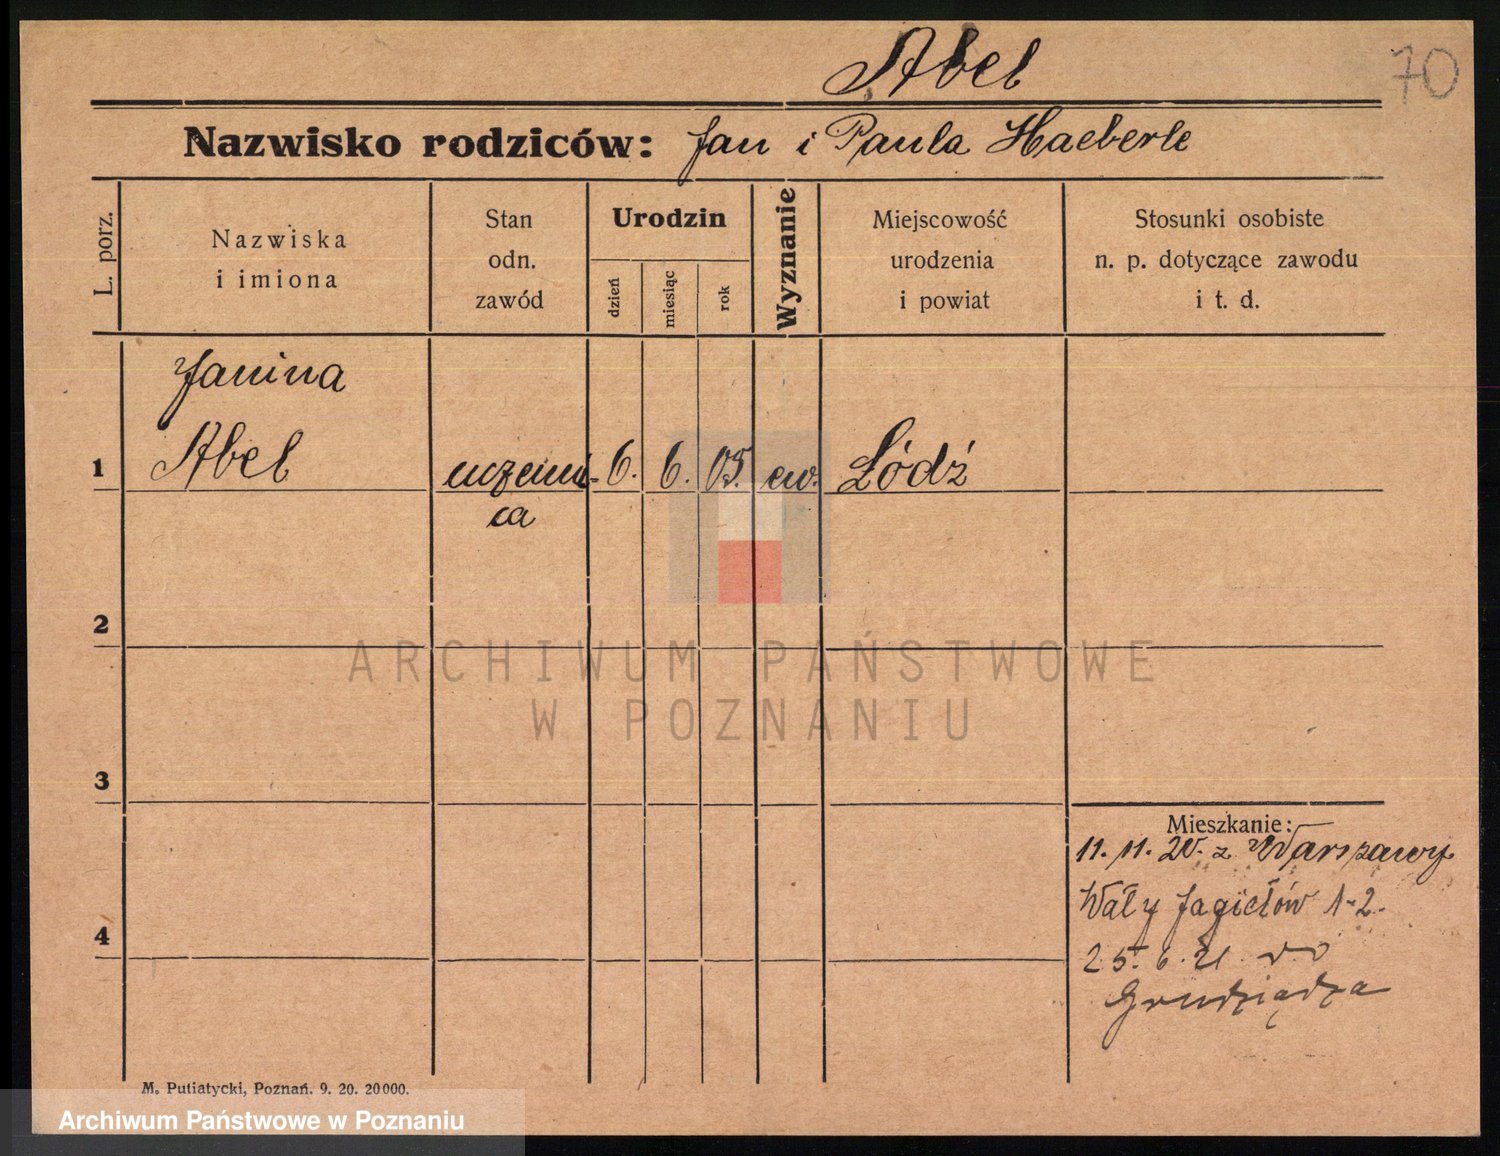 Abel
70
Nazwisko rodziców: Jan i Paula Haeberle
L. porz.
Nazwiska
i imiona
Stan
odn.
zawód
Urodzin
dzień
miesiąc
rok
Wyznanie
Miejscowość
urodzenia
i powiat
Stosunki osobiste
n. p. dotyczące zawodu
i t. d.
Janina
1 Abel uczenni- 6. 6. 05. ew. Łódź
ca
2
ARCHIWUM PAŃSTWOWE
W POZNANIU
3
Mieszkanie:
11. 11. 20. z Warszawy
Wały Jagiełów 1-2.
4
25. 6. 21 do
Grudziądza
M. Putiatycki, Poznań. 9. 20. 20000.
Archiwum Państwowe w Poznaniu